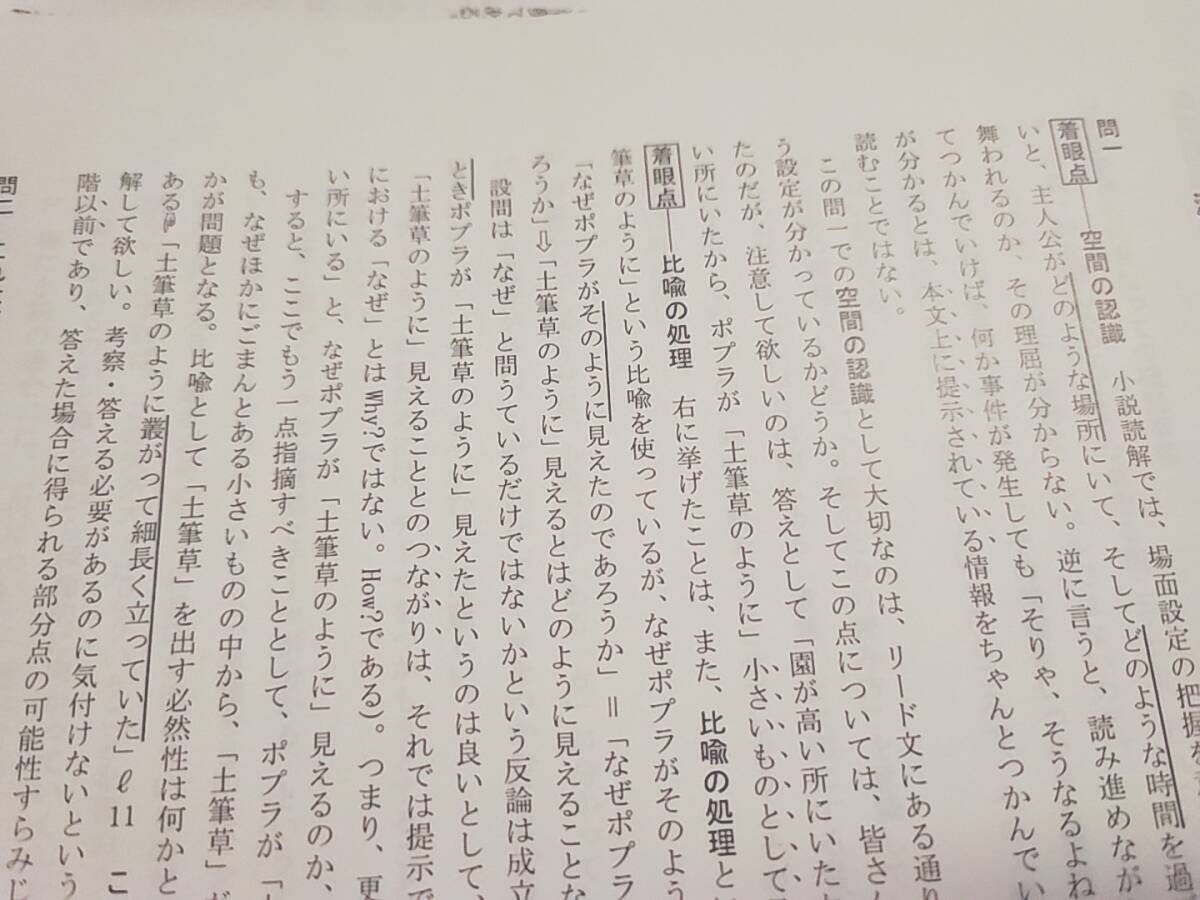 問一
着眼点──空間の認識　小説読解では、場面設定の把握を
いと、主人公がどのような場所にいて、そしてどのような時間を過
舞われるのか、その理屈が分からない。逆に言うと、読み進めなが
てつかんでいけば、何か事件が発生しても「そりゃ、そうなるよね
が分かるとは、本文上に提示されている情報をちゃんとつかんでい
読むことではない。
この問一での空間の認識として大切なのは、リード文にある通り
う設定が分かっているかどうか。そしてこの点については、皆さん
たのだが、注意して欲しいのは、答えとして「園が高い所にいた
い所にいたから、ポプラが「土筆草のように」小さいものとして
着眼点──比喩の処理　右に挙げたことは、また、比喩の処理と
筆草のように」という比喩を使っているが、なぜポプラがそのよう
「なぜポプラがそのように見えたのであろうか」＝「なぜポプラ
ろうか」⇨「土筆草のように」見えるとはどのように見えることな
設問は「なぜ」と問うているだけではないかという反論は成立
ときポプラが「土筆草のように」見えたというのは良いとして、
「土筆草のように」見えることとのつながりは、それでは提示で
における「なぜ」とはWhy?ではない。How?である)。つまり、更
い所にいる」と、なぜポプラが「土筆草のように」見えるのか、
すると、ここでもう一点指摘すべきこととして、ポプラが「
も、なぜほかにごまんとある小さいものの中から、「土筆草」が
かが問題となる。比喩として「土筆草」を出す必然性は何かと
ある「土筆草のように叢がって細長く立っていた」ℓ11　こ
解して欲しい。考察・答える必要があるのに気付けないという
階以前であり、答えた場合に得られる部分点の可能性すらみじ
問二